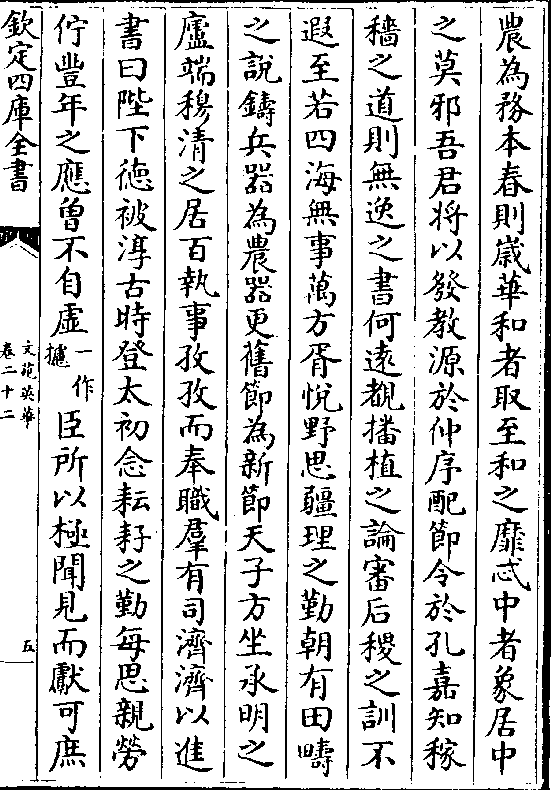 農為務本春則嵗華和者取至和之靡忒中者象居中
之莫邪吾君将以發教源於仲序配節令於孔嘉知稼
穡之道則無逸之書何逺覩播植之論審后稷之訓不
遐至若四海無事萬方胥悅野思疆理之勤朝有田疇
之說鑄兵器為農器更舊節為新節天子方坐承明之
廬端穆清之居百執事孜孜而奉職羣有司濟濟以進
書曰陛下徳被淳古時登太初念耘耔之勤每思親勞
佇豐年之應曾不自虛一作攄臣所以極聞見而獻可庶
欽定四庫全書
文苑英華
卷二十二
五